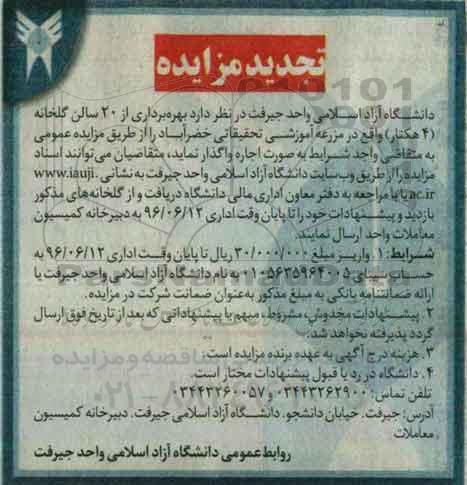 تجدید مزایده
دانشگاه آزاد اسلامی واحد جیرفت در نظر دارد بهره‌برداری از ۲۰ سالن گلخانه
(۴ هکتار) واقع در مزرعه آموزشی تحقیقاتی خضرآباد را از طریق مزایده عمومی
به متقاضی واجد شرایط به صورت اجاره واگذار نماید، متقاضیان می‌توانند اسناد
مزایده را از طریق وب‌سایت دانشگاه آزاد اسلامی واحد جیرفت به نشانی www.iauji.
ac.ir یا با مراجعه به دفتر معاون اداری مالی دانشگاه دریافت و از گلخانه‌های مذکور
بازدید و پیشنهادات خود را تا پایان وقت اداری ۹۶/۰۶/۱۲ به دبیرخانه کمیسیون
معاملات واحد ارسال نمایند.
شرایط: ۱. واریز مبلغ ۳۰/۰۰۰/۰۰۰ ریال تا پایان وقت اداری ۹۶/۰۶/۱۲ به
حساب سیبای ۰۱۰۵۶۳۵۹۶۴۰۰۵ به نام دانشگاه آزاد اسلامی واحد جیرفت یا
ارائه ضمانتنامه بانکی به مبلغ مذکور به‌عنوان ضمانت شرکت در مزایده.
۲. پیشنهادات مخدوش، مشروط، مبهم یا پیشنهاداتی که بعد از تاریخ فوق ارسال
گردد پذیرفته نخواهد شد.
۳. هزینه درج آگهی به عهده برنده مزایده است.
۴. دانشگاه در رد یا قبول پیشنهادات مختار است.
تلفن تماس: ۰۳۴۴۳۲۶۲۹۰۰ و ۰۳۴۴۳۲۶۰۰۵۷
آدرس: جیرفت. خیابان دانشجو. دانشگاه آزاد اسلامی جیرفت. دبیرخانه کمیسیون
معاملات
روابط عمومی دانشگاه آزاد اسلامی واحد جیرفت